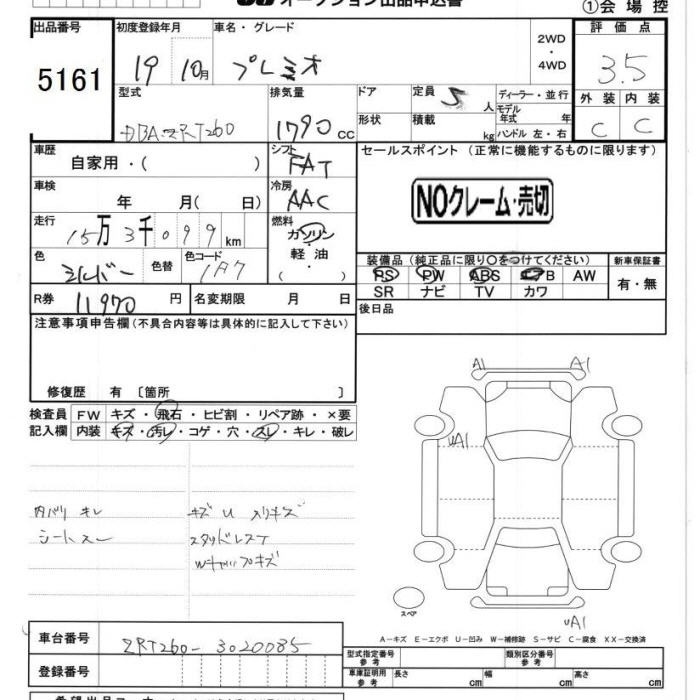 オークション出品申込書
①会場控
出品番号 5161
初度登録年月 19 10月
車名・グレード プレミオ
2WD・4WD
評価点 3.5
型式 DBA-ZRT260
排気量 1790cc
ドア
形状
定員 5人
積載 kg
ディーラー・並行
モデル年式 年
ハンドル 左・右
外装 C
内装 C
車歴 自家用・( )
シフト FAT
セールスポイント (正常に機能するものに限ります)
車検 年 月( 日)
冷房 AAC
NOクレーム・売切
走行 15万3千099km
燃料 ガソリン・軽油・( )
色 シルバー
色替
色コード 1A7
装備品 (純正品に限り○をつけてください)
新車保証書
PS PW ABS エアB AW
SR ナビ TV カワ
有・無
R券 11970円
名変期限 月 日
後日品
注意事項申告欄(不具合内容等は具体的に記入して下さい)
修復歴 有 〔箇所 〕
検査員 FW キズ・飛石・ヒビ割・リペア跡・×要
記入欄 内装 キズ・汚レ・コゲ・穴・スレ・キレ・破レ
A1 A1
uA1
内バリ キレ
キズ U 入リキズ
シートスレ
スタッドレスT
Wキャップキズ
スペア
uA1
A-キズ E-エクボ U-凹み W-補修跡 S-サビ C-腐食 XX-交換済
車台番号 ZRT260-3020085
型式指定番号 参考
類別区分番号 参考
登録番号
車庫証明用 参考
長さ cm
幅 cm
高さ cm